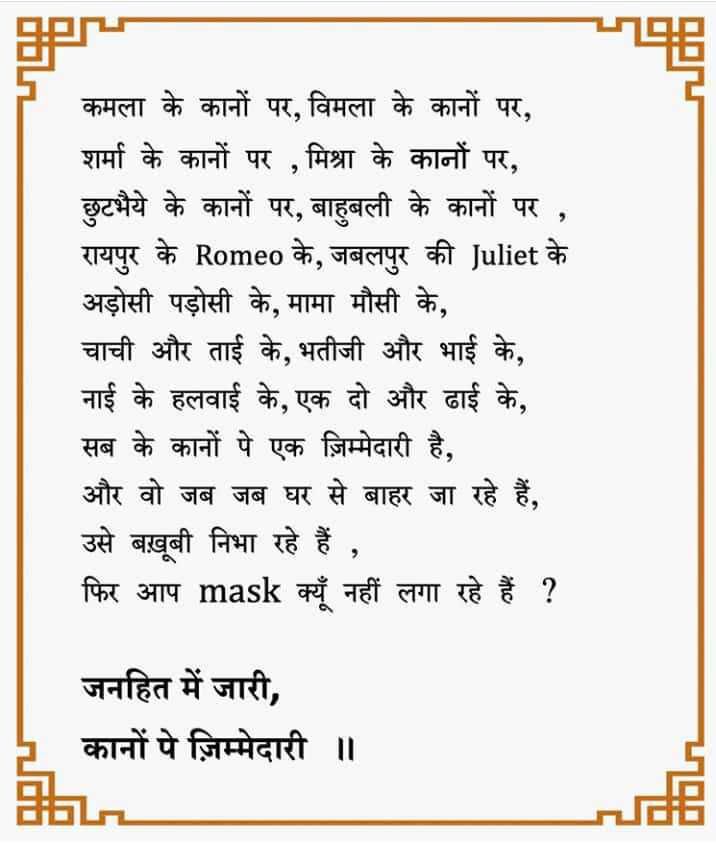 कमला के कानों पर, विमला के कानों पर,
शर्मा के कानों पर , मिश्रा के कानों पर,
छुटभैये के कानों पर, बाहुबली के कानों पर ,
रायपुर के Romeo के, जबलपुर की Juliet के
अड़ोसी पड़ोसी के, मामा मौसी के,
चाची और ताई के, भतीजी और भाई के,
नाई के हलवाई के, एक दो और ढाई के,
सब के कानों पे एक ज़िम्मेदारी है,
और वो जब जब घर से बाहर जा रहे हैं,
उसे बख़ूबी निभा रहे हैं ,
फिर आप mask क्यूँ नहीं लगा रहे हैं ?
जनहित में जारी,
कानों पे ज़िम्मेदारी ॥